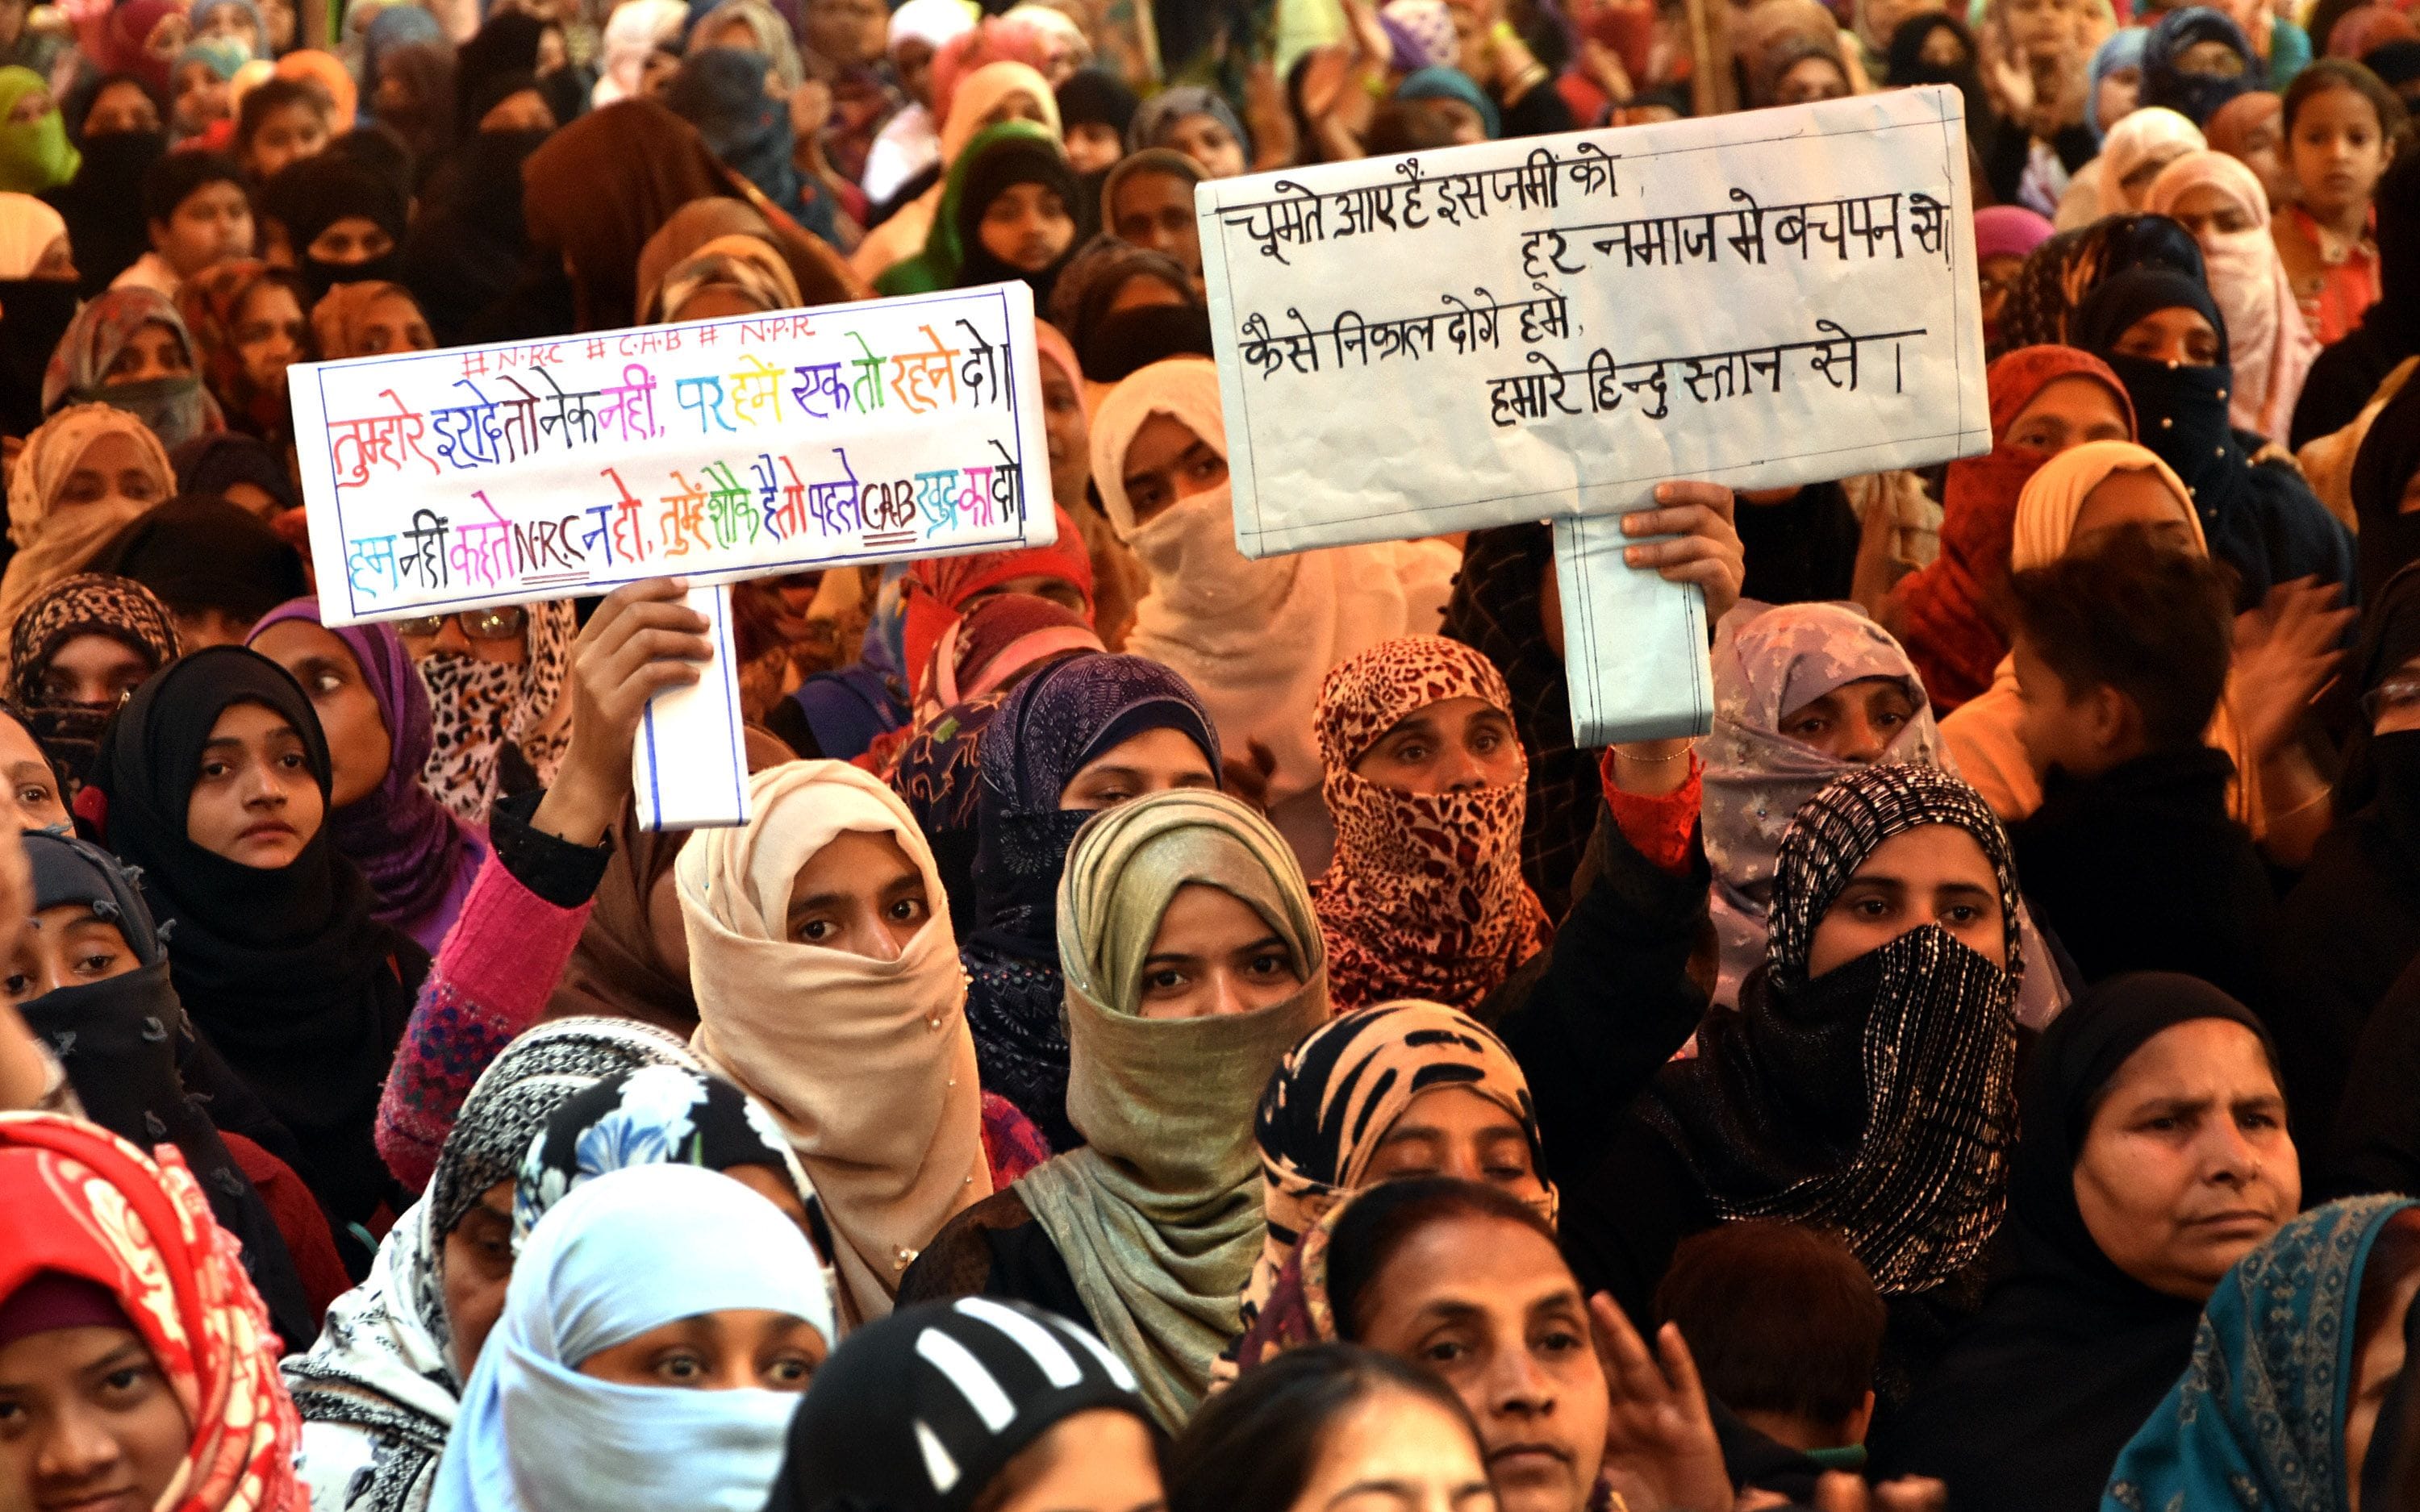 # N.R.C # C.A.B # N.P.R
तुम्हारे इरादे तो नेक नहीं, पर हमें एक तो रहने दो।
हम नहीं कहते N.R.C न हो, तुम्हें शौक है तो पहले C.A.B खुद का दो
चूमते आए हैं इस जमीं को,
हर नमाज मे बचपन से।
कैसे निकाल दोगे हमे,
हमारे हिन्दुस्तान से।